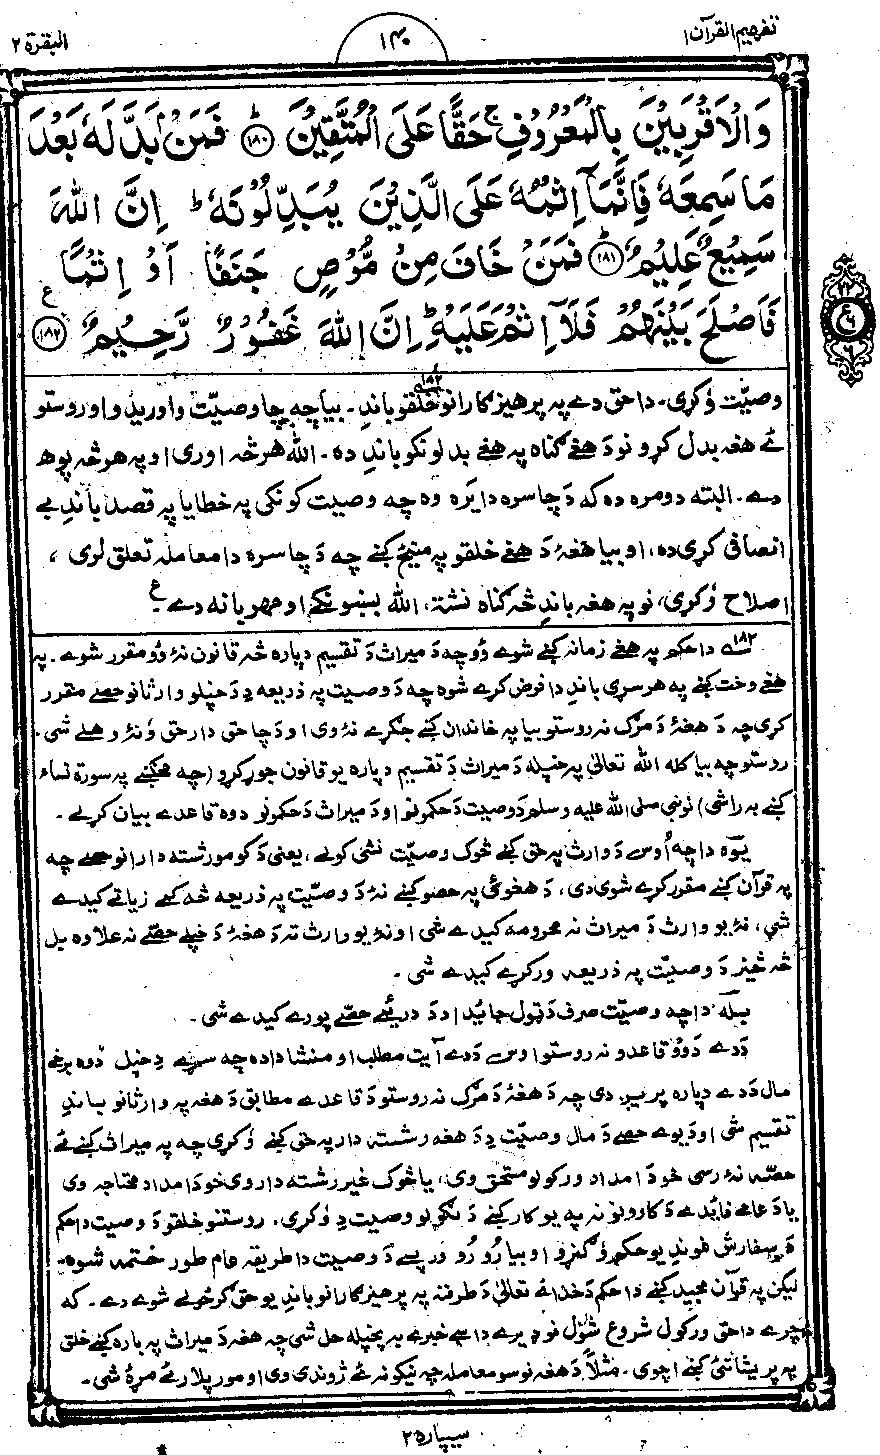 تفهيم القرآن ١
١٤٠
البقرة ٢
وَالْاَقْرَبِيْنَ بِالْمَعْرُوْفِ ۚ حَقًّا عَلَى الْمُتَّقِيْنَ ؕ ﴿١٨٠﴾ فَمَنْۢ بَدَّلَهٗ بَعْدَ
مَا سَمِعَهٗ فَاِنَّمَاۤ اِثْمُهٗ عَلَى الَّذِيْنَ يُبَدِّلُوْنَهٗ ؕ اِنَّ اللّٰهَ
سَمِيْعٌ عَلِيْمٌ ؕ ﴿١٨١﴾ فَمَنْ خَافَ مِنْ مُّوْصٍ جَنَفًا اَوْ اِثْمًا
فَاَصْلَحَ بَيْنَهُمْ فَلَاۤ اِثْمَ عَلَيْهِ ؕ اِنَّ اللّٰهَ غَفُوْرٌ رَّحِيْمٌ ﴿١٨٢﴾ ع
وصيّت وُکړی۔ داحق دے په پرهيزکارانو خلقو باندِ۔ ١٨٢ بيا چه چا وصيّت واوريدو او روستو
ئے هغه بدل کړو نو دَ هغے ګناه په هغے بدلونکو باندِ ده۔ الله هر څه اوری او په هر څه پوهه
دے۔ البته دومره ده که دَ چا سره دا يَره وه چه وصيت کونکی په خطا يا په قصد باندِ بے
انصافی کړی ده، او بيا هغهٔ دَ هغے خلقو په مينځ کښے چه دَ چا سره دا معامله تعلق لری،
اصلاح وُکړی، نو په هغه باندِ څه ګناه نشته، الله بښونکے او مهربانه دے۔ ع
١٨٢ دا حکم په هغے زمانه کښے شوے وُو چه دَ ميراث دَ تقسيم دپاره څه قانون نهٔ وُو مقرر شوے۔ په
هغے وخت کښے په هر سړی باندِ دا فرض کړے شوه چه دَ وصيت په ذريعه دِ دَ خپلو وارثانو حصے مقرر
کړی چه دَ هغهٔ دَ مرګ نه روستو بيا په خاندان کښے جګړے نهٔ وی او دَ چا حق دار حق وُنهٔ وهلے شی۔
روستو چه بيا کله الله تعالیٰ په خپله دَ ميراث دَ تقسيم دپاره يو قانون جوړ کړو (چه مخکښے په سورة نساء
کښے به راشی) نو نبی صلی الله عليه وسلم دَ وصيت دَ حکمونو او دَ ميراث دَ حکمونو دوه قاعدے بيان کړلے۔
يوَه دا چه اُوس دَ وارث په حق کښے څوک وصيّت نشی کولے، يعنی دَ کومو رشته دارانو حصے چه
په قرآن کښے مقررے کړے شوی دی، دَ هغوئی په حصو کښے نهٔ دَ وصيّت په ذريعه څه کمے زياتے کيدے
شی، نهٔ يو وارث دَ ميراث نه محرومه کيدے شی او نهٔ يو وارث ته دَ هغهٔ دَ خپلے حصّے نه علاوه بل
څه څيز دَ وصيّت په ذريعه ورکړے کيدے شی۔
بله دا چه وصيّت صرف دَ ټول جائيداد دَ دريئے حصّے پورے کيدے شی۔
دَدے دَ وُو قاعدو نه روستو اوس دَدے آيت مطلب او منشا داده چه سړے دِ خپل دوه برخے
مال دَدے دپاره پريږدی چه دَ هغهٔ دَ مرګ نه روستو دَ قاعدے مطابق دَ هغه په وارثانو باندِ
تقسيم شی او دَ يوے حصے دَ مال وصيّت دِ دَ هغه رشته دار په حق کښے وُکړی چه په ميراث کښے ئے
حصّه نهٔ رسی خو دَ امداد ورکولو مستحق وی، يا څوک غير رشته دار وی خو دَ امداد محتاجه وی
يا دَ عامے فائدے دَ کارونو نه په يو کار کښے دَ لګولو وصيت دِ وُکړی۔ روستنو خلقو دَ وصيت دا حکم
دَ سفارش غوندِ يو حکم وُګنړو او بيا رُو رُو ورپسے دَ وصيت دا طريقه عام طور ختمه شوه۔
ليکن په قرآن مجيد کښے دا حکم دَ خدائے تعالیٰ دَ طرفنه په پرهيزکارانو باندِ يو حق ګرځولے شوے دے۔ که
چرے دا حق ورکول شروع شول نو ډيرے داسے خبرے به پخپله حل شی چه هغه دَ ميراث په باره کښے خلق
په پريشانئ کښے اچوی۔ مثلاً دَ هغه نوسو معامله چه نيکونه ئے ژوندی وی او مور پلار ئے مړهٔ شی۔
سيپاره ٢